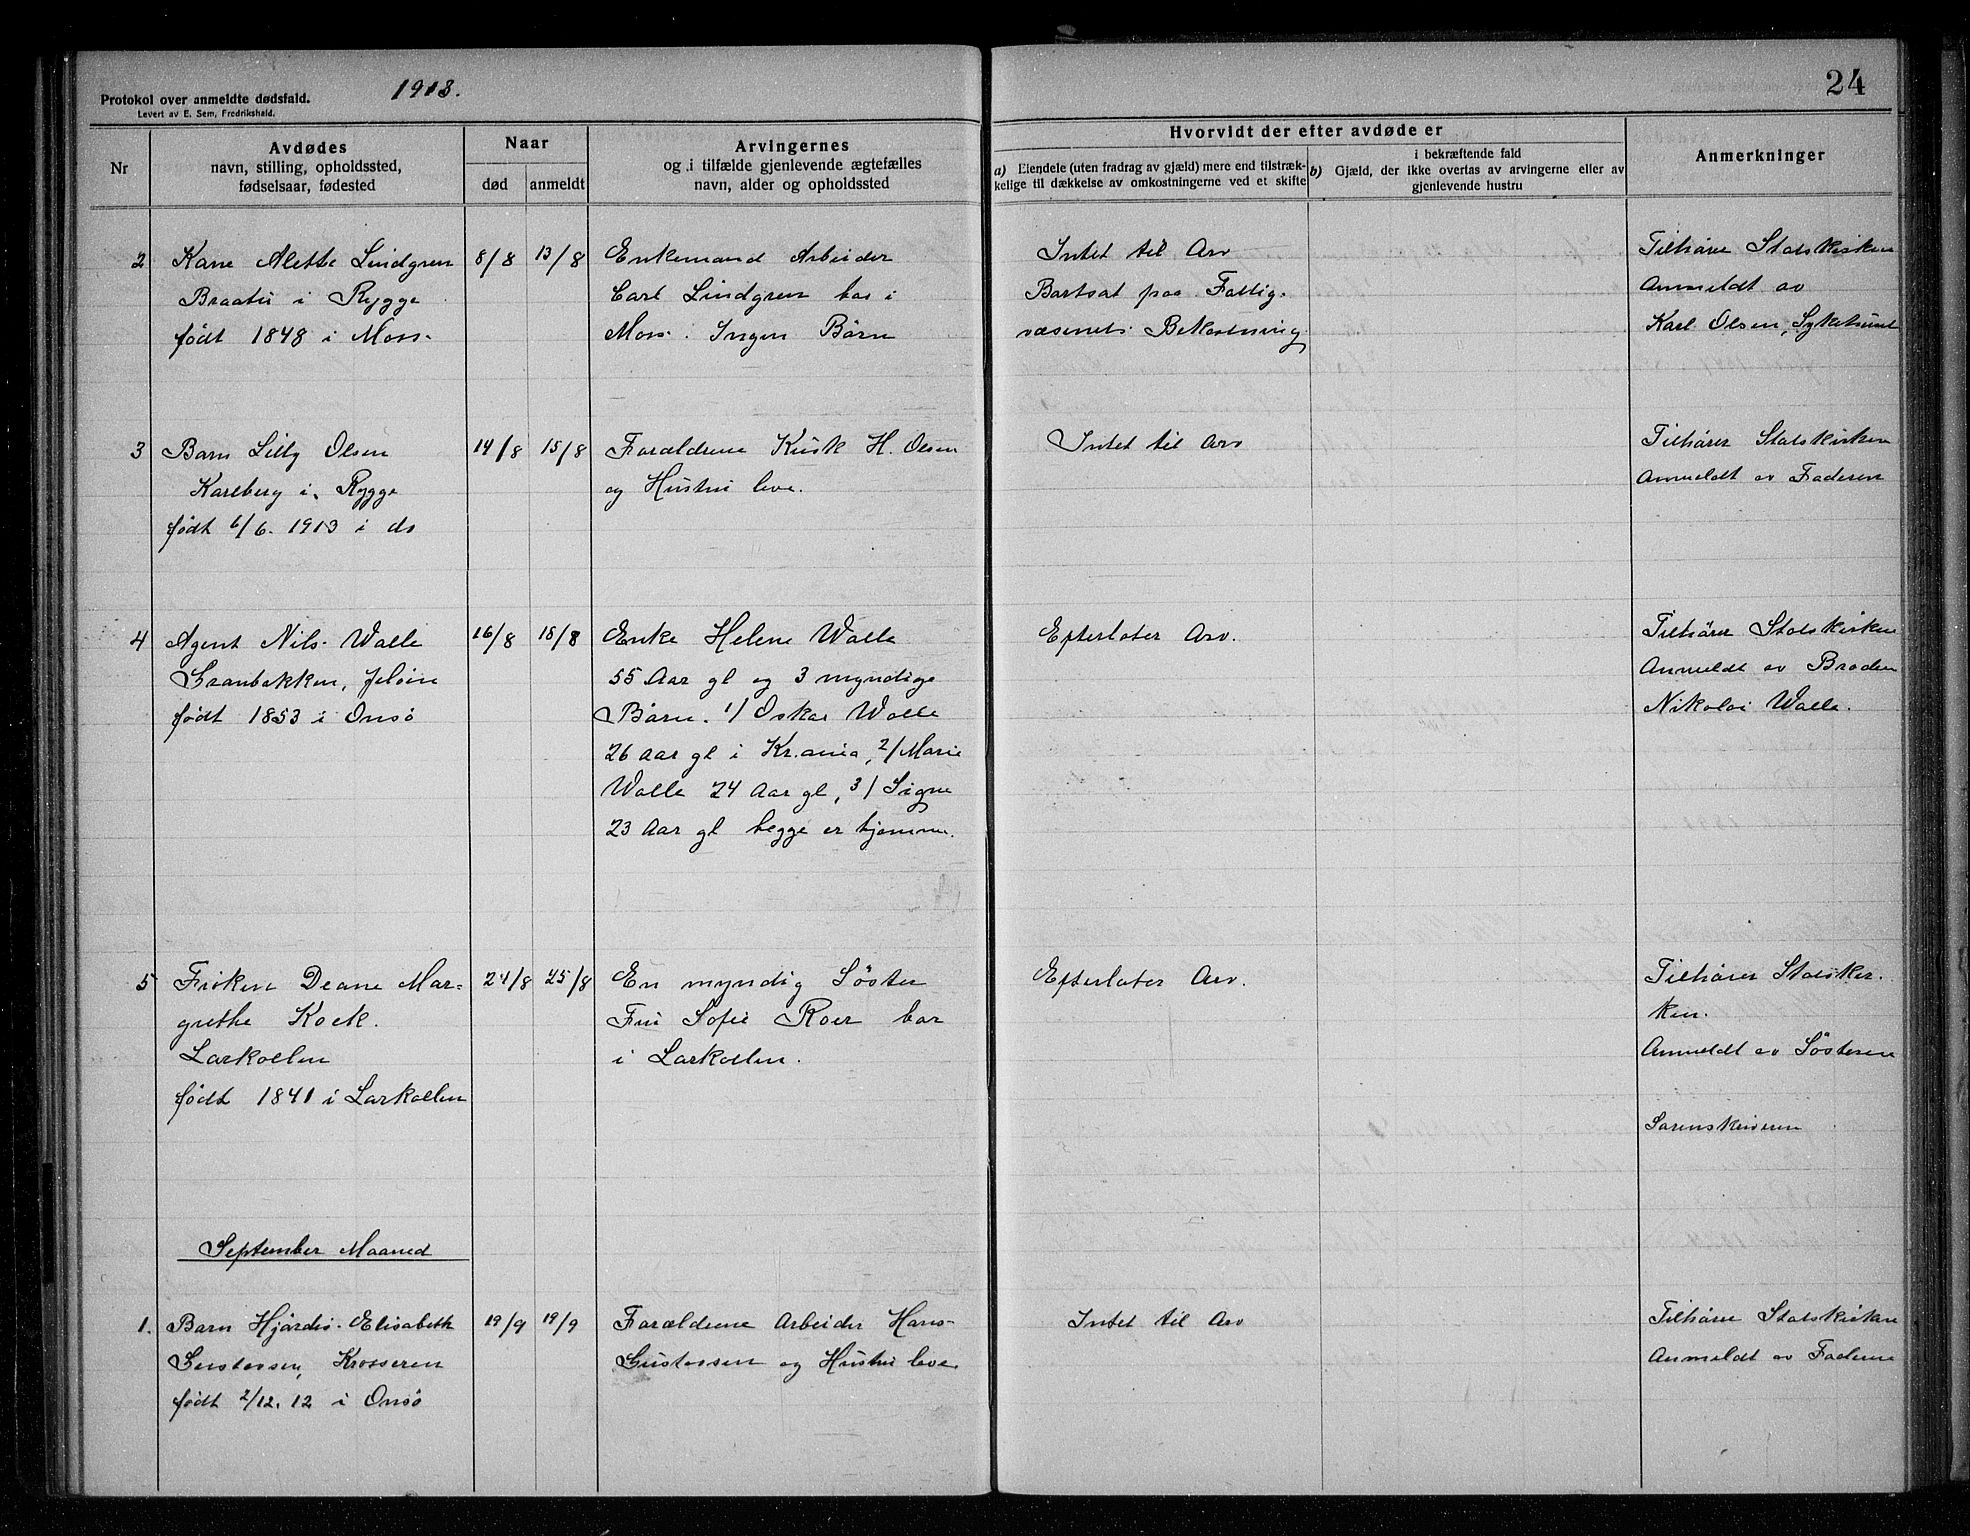 Protokol over anmeldte dødsfald.
Levert av E. Sem, Fredrikshald.
1913.
24
Nr
Avdødes
navn, stilling, opholdssted,
fødselsaar, fødested
Naar
død
anmeldt
Arvingernes
og i tilfælde gjenlevende ægtefælles
navn, alder og opholdssted
Hvorvidt der efter avdøde er
a) Eiendele (uten fradrag av gjæld) mere end tilstræk-
kelige til dækkelse av omkostningerne ved et skifte
i bekræftende fald
b) Gjæld, der ikke overtas av arvingerne eller av
gjenlevende hustru
Anmerkninger
2
Kane Alette Lindgren
Braaten i Rygge
født 1848 i Moss.
8/8
13/8
Enkemand Arbeider
Carl Lindgren bor i
Moss. Ingen Børn
Intet til Arv
Bortsat paa Fattig-
væsenets Bekostning
Tilhører Statskirken
Anmeldt av
Karl Olsen, Sykehuset
3
Barn Lilly Olsen
Karlberg i Rygge
født 6/6. 1913 i do
14/8
15/8
Forældrene Kusk H. Olsen
og Hustru leve.
Intet til Arv
Tilhører Statskirken
Anmeldt av Faderen
4
Agent Nils Walle
Granbakken, Jeløen
født 1853 i Onsø
16/8
18/8
Enke Helene Walle
55 Aar gl og 3 myndige
Børn. 1/ Oskar Walle
26 aar gl i Kr.ania, 2/ Marie
Walle 24 Aar gl, 3/ Signe
23 Aar gl begge er hjemme.
Efterlater Arv.
Tilhører Statskirken
Anmeldt av Broderen
Nikolai Walle.
5
Frøken Deane Mar-
grethe Kock.
Larkollen
født 1841 i Larkollen
24/8
25/8
En myndig Søster
Fru Sofie Roer bor
i Larkollen.
Efterlater Arv.
Tilhører Statskir-
ken.
Anmeldt av Søsteren
Sorenskriveren
September Maaned
1.
Barn Hjørdis Elisabeth
Gustavsen, Krosseren
født 2/12. 12 i Onsø
19/9
19/9
Forældrene Arbeider Hans
Gustavsen og Hustru leve
Intet til Arv
Tilhører Statskirken
Anmeldt av Faderen